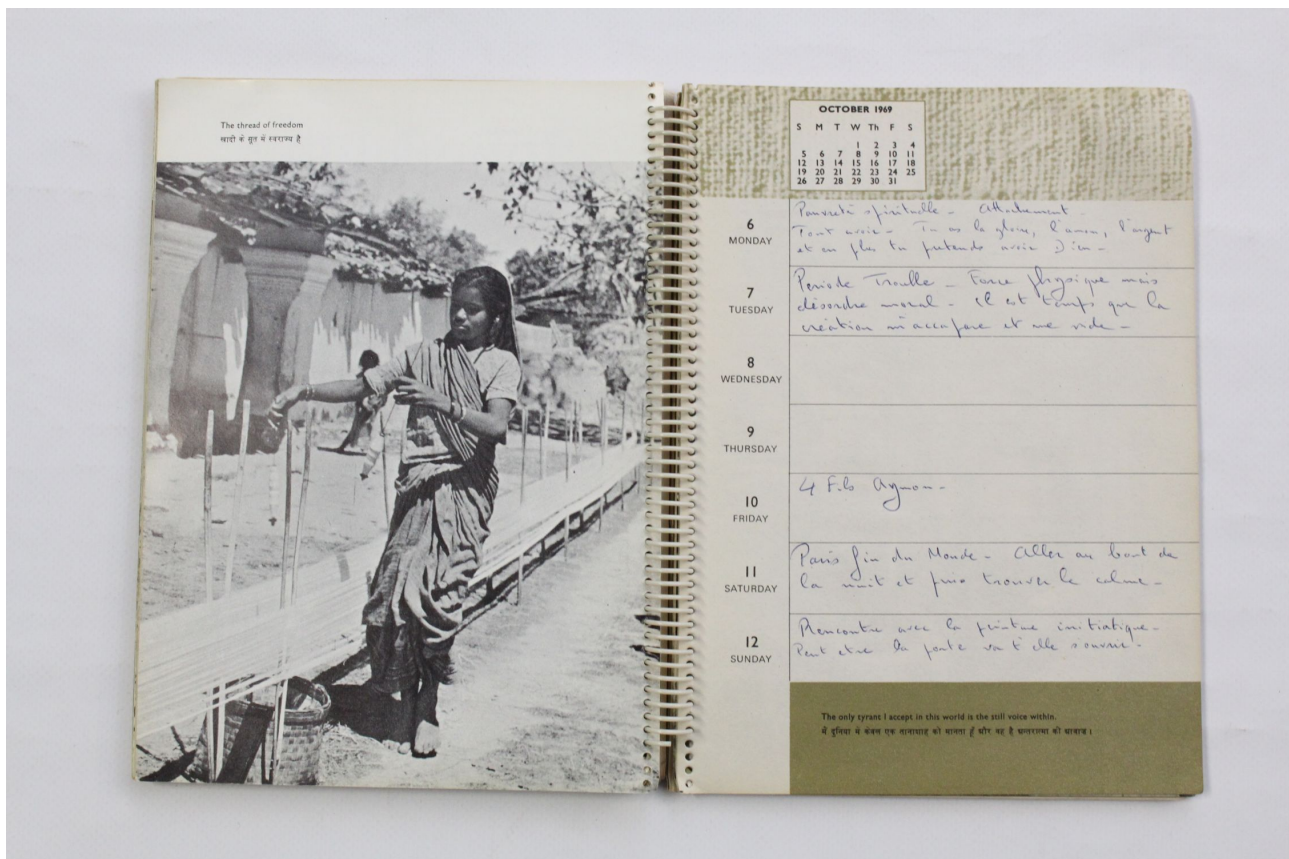 The thread of freedom
खादी के सूत में स्वराज्य है
OCTOBER 1969
S M T W Th F S
1 2 3 4
5 6 7 8 9 10 11
12 13 14 15 16 17 18
19 20 21 22 23 24 25
26 27 28 29 30 31
6
MONDAY
Pauvreté spirituelle - Attachement -
Tout avoir - Tu as la gloire, l'amour, l'argent
et en plus tu prétends avoir Dieu -
7
TUESDAY
Periode Trouble - Force physique mais
désordre moral - il est temps que la
création m'accapare et me vide -
8
WEDNESDAY
9
THURSDAY
10
FRIDAY
4 Fils Aymon -
11
SATURDAY
Paris fin du Monde - Aller au bout de
la nuit et puis trouver le calme -
12
SUNDAY
Rencontre avec la peinture initiatique -
Peut etre la porte va t'elle s'ouvrir -
The only tyrant I accept in this world is the still voice within.
मैं दुनिया में केवल एक तानाशाह को मानता हूँ और वह है अन्तरात्मा की आवाज।